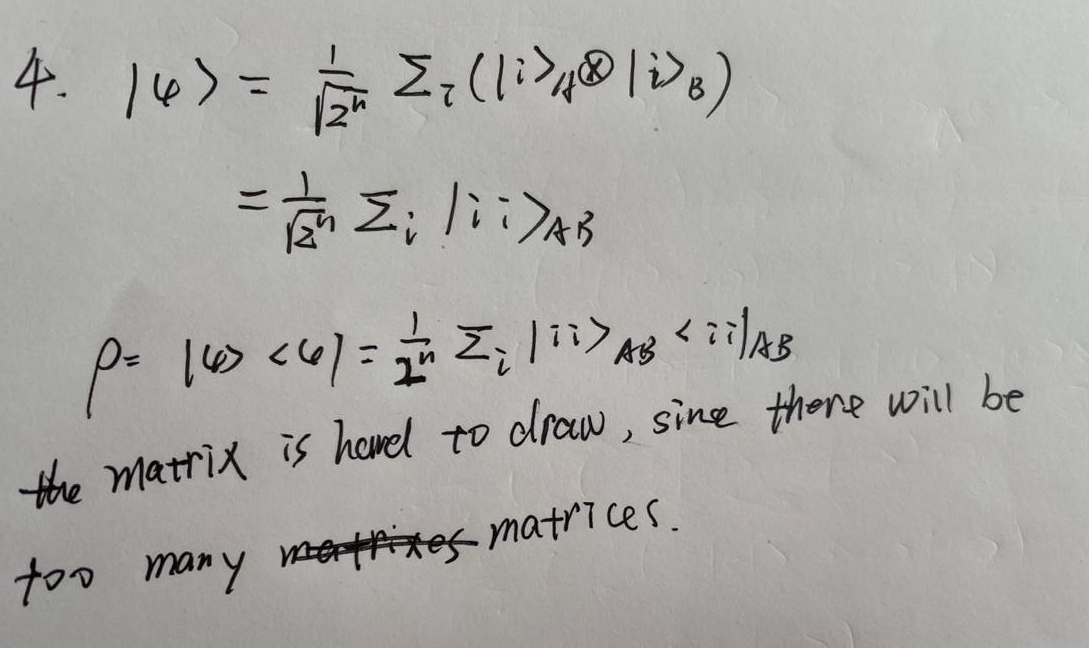 4. |φ> = 1/√2ⁿ Σᵢ (|i>_A ⊗ |i>_B)
= 1/√2ⁿ Σᵢ |ii>_AB
ρ= |φ> <φ| = 1/2ⁿ Σᵢ |ii>_AB <ii|_AB
the matrix is hard to draw, sine there will be
too many matrices.